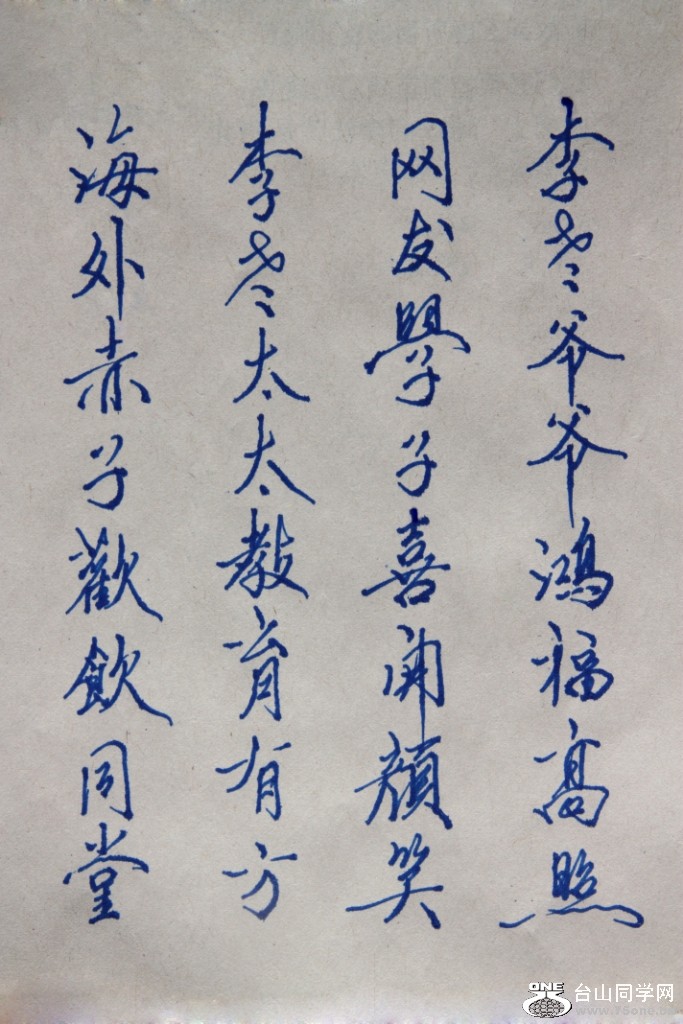 李老爷爷鴻福高照
网友學子喜開顔笑
李老太太教育有方
海外赤子歡飲同堂
ONE
台山同学网